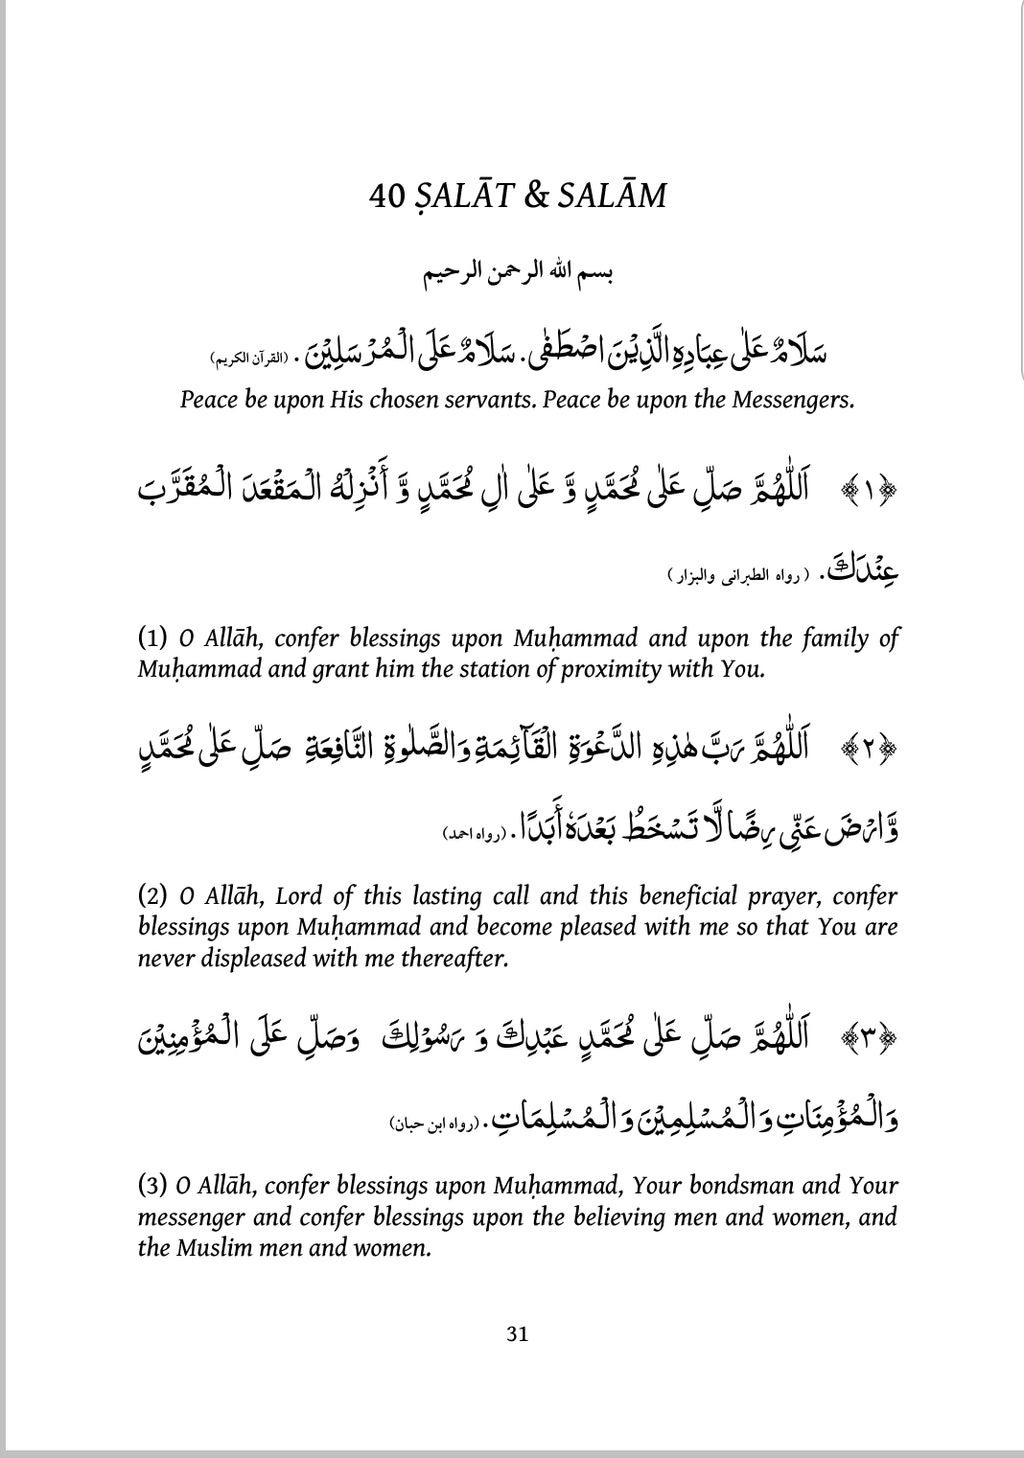 40 ṢALĀT & SALĀM
بسم الله الرحمن الرحيم
سَلَامٌ عَلٰى عِبَادِهِ الَّذِيْنَ اصْطَفٰى. سَلَامٌ عَلَى الْمُرْسَلِيْنَ. (القرآن الكريم)
Peace be upon His chosen servants. Peace be upon the Messengers.
﴿١﴾ اَللّٰهُمَّ صَلِّ عَلٰى مُحَمَّدٍ وَّ عَلٰى اٰلِ مُحَمَّدٍ وَّ أَنْزِلْهُ الْمَقْعَدَ الْمُقَرَّبَ
عِنْدَكَ. (رواه الطبرانى والبزار)
(1) O Allāh, confer blessings upon Muḥammad and upon the family of
Muḥammad and grant him the station of proximity with You.
﴿٢﴾ اَللّٰهُمَّ رَبَّ هٰذِهِ الدَّعْوَةِ الْقَآئِمَةِ وَالصَّلٰوةِ النَّافِعَةِ صَلِّ عَلٰى مُحَمَّدٍ
وَّارْضَ عَنِّي رِضًا لَّا تَسْخَطُ بَعْدَهٗ أَبَدًا. (رواه احمد)
(2) O Allāh, Lord of this lasting call and this beneficial prayer, confer
blessings upon Muḥammad and become pleased with me so that You are
never displeased with me thereafter.
﴿٣﴾ اَللّٰهُمَّ صَلِّ عَلٰى مُحَمَّدٍ عَبْدِكَ وَ رَسُوْلِكَ وَصَلِّ عَلَى الْمُؤْمِنِيْنَ
وَالْمُؤْمِنَاتِ وَالْمُسْلِمِيْنَ وَالْمُسْلِمَاتِ. (رواه ابن حبان)
(3) O Allāh, confer blessings upon Muḥammad, Your bondsman and Your
messenger and confer blessings upon the believing men and women, and
the Muslim men and women.
31